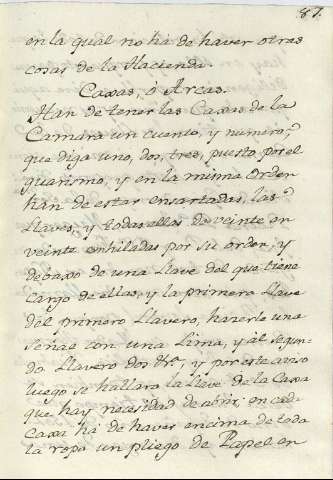 87.
en la qual no há de haver otras
cosas de la Hacienda.
Caxas, ó Arcas.
Han de tener las Caxas de la
Camara un cuento, y numero,
que diga uno, dos, tres, puesto por el
guarismo, y en la misma Orden
han de estar ensartadas, las
Llaves, y todas ellas de veinte en
veinte enhiladas por su orden, y
debaxo de una Llave del que tiene
cargo de ellas, y la primera Llave
del primero Llavero, hazerle una
señal con una Lima, y ál segun-
do Llavero dos &rª, y por este aviso
luego se hallara la Llave de la Caxa
que hay necesidad de abrir, en cada
Caxa há de haver encima de toda
la ropa un pliego de Papel en